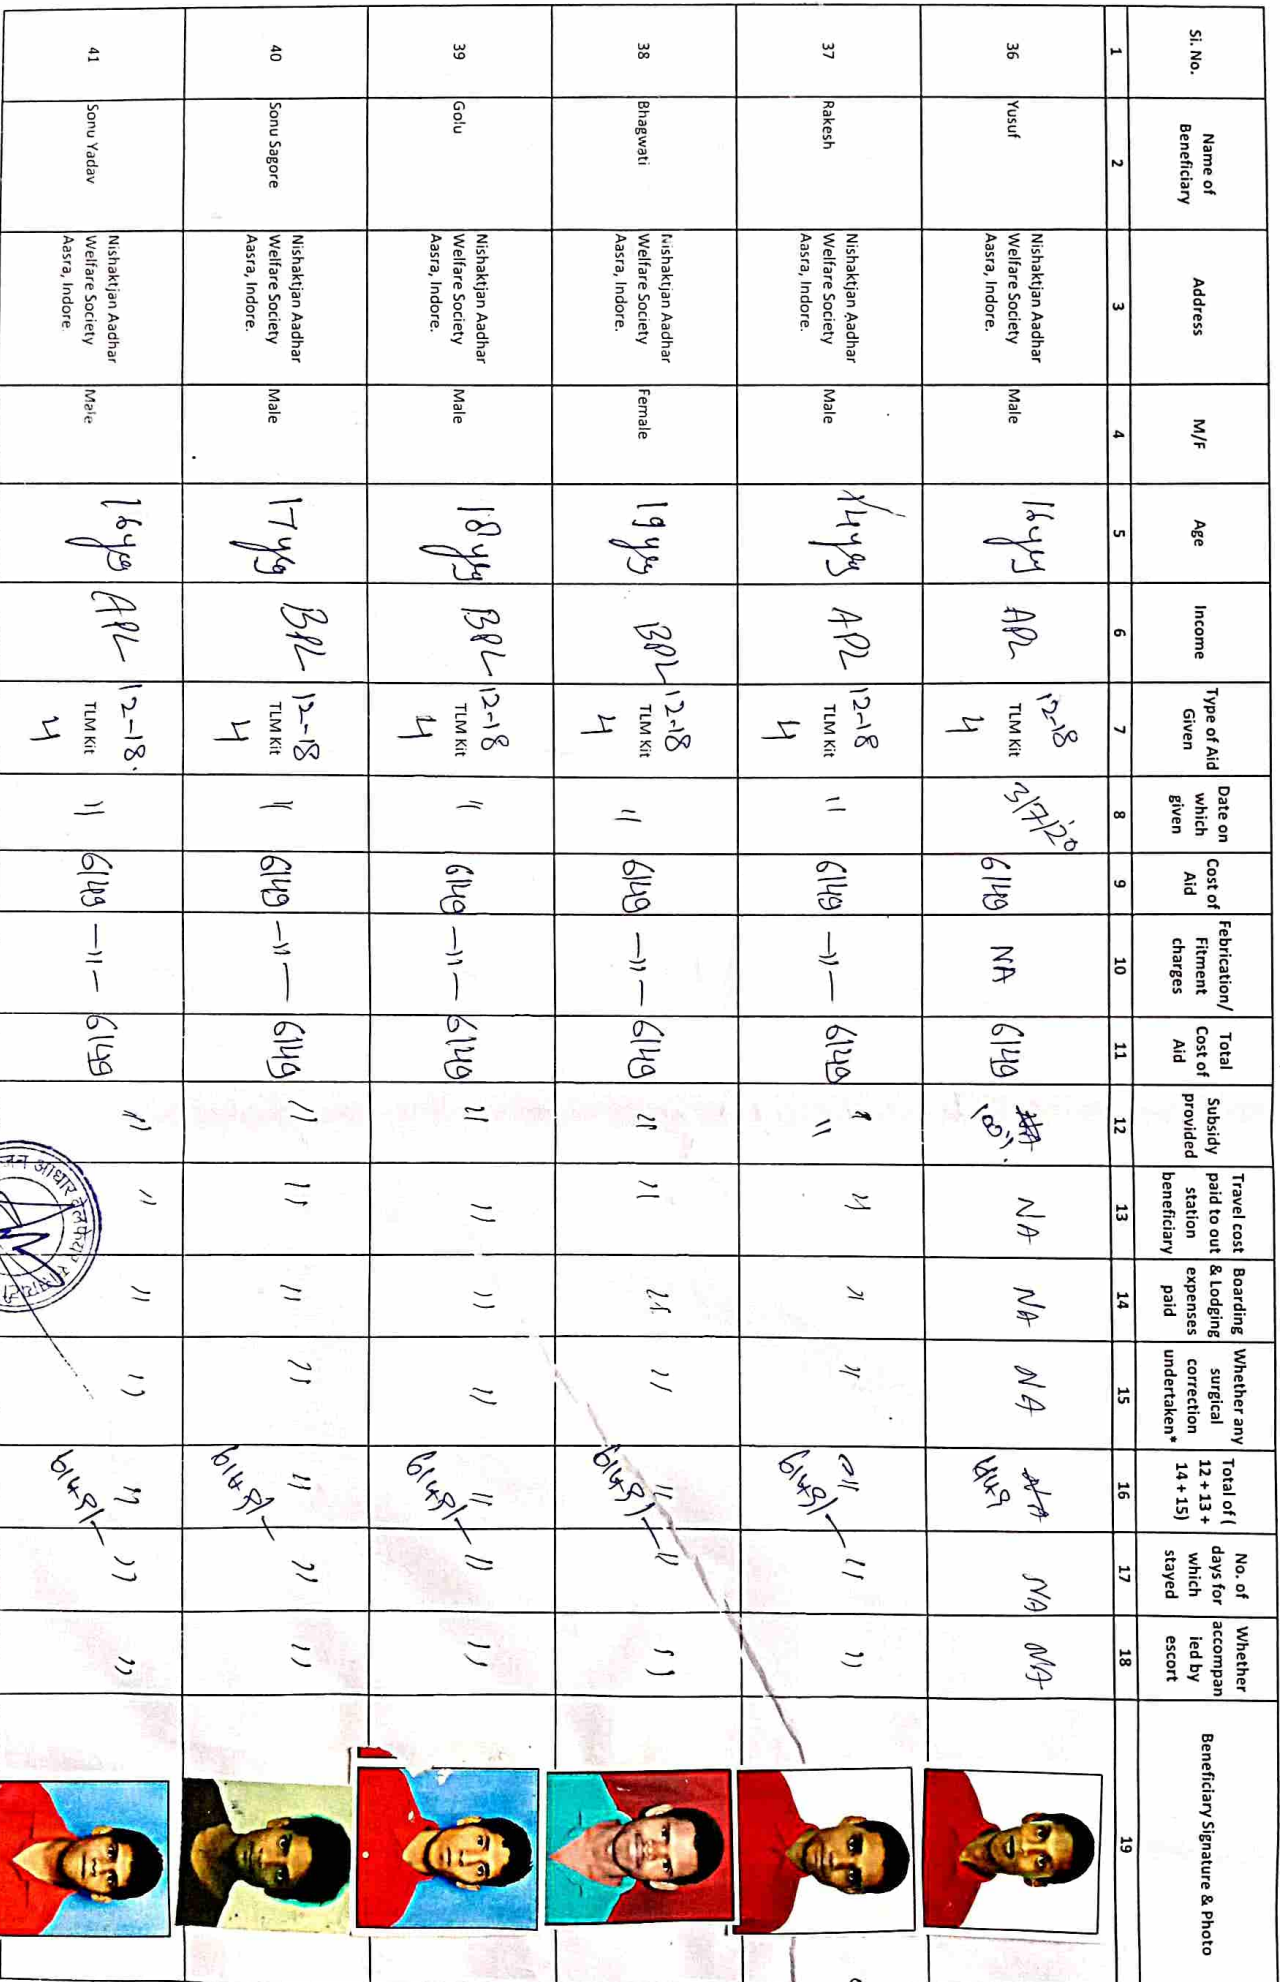 Si. No.
Name of
Beneficiary
Address
M/F
Age
Income
Type of Aid
Given
Date on
which
given
Cost of
Aid
Febrication/
Fitment
charges
Total
Cost of
Aid
Subsidy
provided
Travel cost
paid to out
station
beneficiary
Boarding
& Lodging
expenses
paid
Whether any
surgical
correction
undertaken*
Total of (
12 + 13 +
14 + 15)
No. of
days for
which
stayed
Whether
accompan
ied by
escort
Beneficiary Signature & Photo
1 2 3 4 5 6 7 8 9 10 11 12 13 14 15 16 17 18 19
36
Yusuf
Nishaktjan Aadhar
Welfare Society
Aasra, Indore.
Male
16 yrs
APL
12-18
TLM Kit
4
3/7/20
6149
NA
6149
NA
100%.
NA
NA
NA
NA
NA
NA
37
Rakesh
Nishaktjan Aadhar
Welfare Society
Aasra, Indore.
Male
14 yrs
APL
12-18
TLM Kit
4
"
6149
—"—
6149
"
"
"
"
"
6149/-
"
"
38
Bhagwati
Nishaktjan Aadhar
Welfare Society
Aasra, Indore.
Female
19 yrs
BPL
12-18
TLM Kit
4
"
6149
—"—
6149
"
"
"
"
"
6149/-
"
"
39
Golu
Nishaktjan Aadhar
Welfare Society
Aasra, Indore.
Male
18 yrs
BPL
12-18
TLM Kit
4
"
6149
—"—
6149
"
"
"
"
"
6149/-
"
"
40
Sonu Sagore
Nishaktjan Aadhar
Welfare Society
Aasra, Indore.
Male
17 yrs
BPL
12-18
TLM Kit
4
"
6149
—"—
6149
"
"
"
"
"
6149/-
"
"
41
Sonu Yadav
Nishaktjan Aadhar
Welfare Society
Aasra, Indore.
Male
16 yrs
APL
12-18.
TLM Kit
4
"
6149
—"—
6149
"
"
"
"
"
6149/-
"
"
आधार वेलफेयर